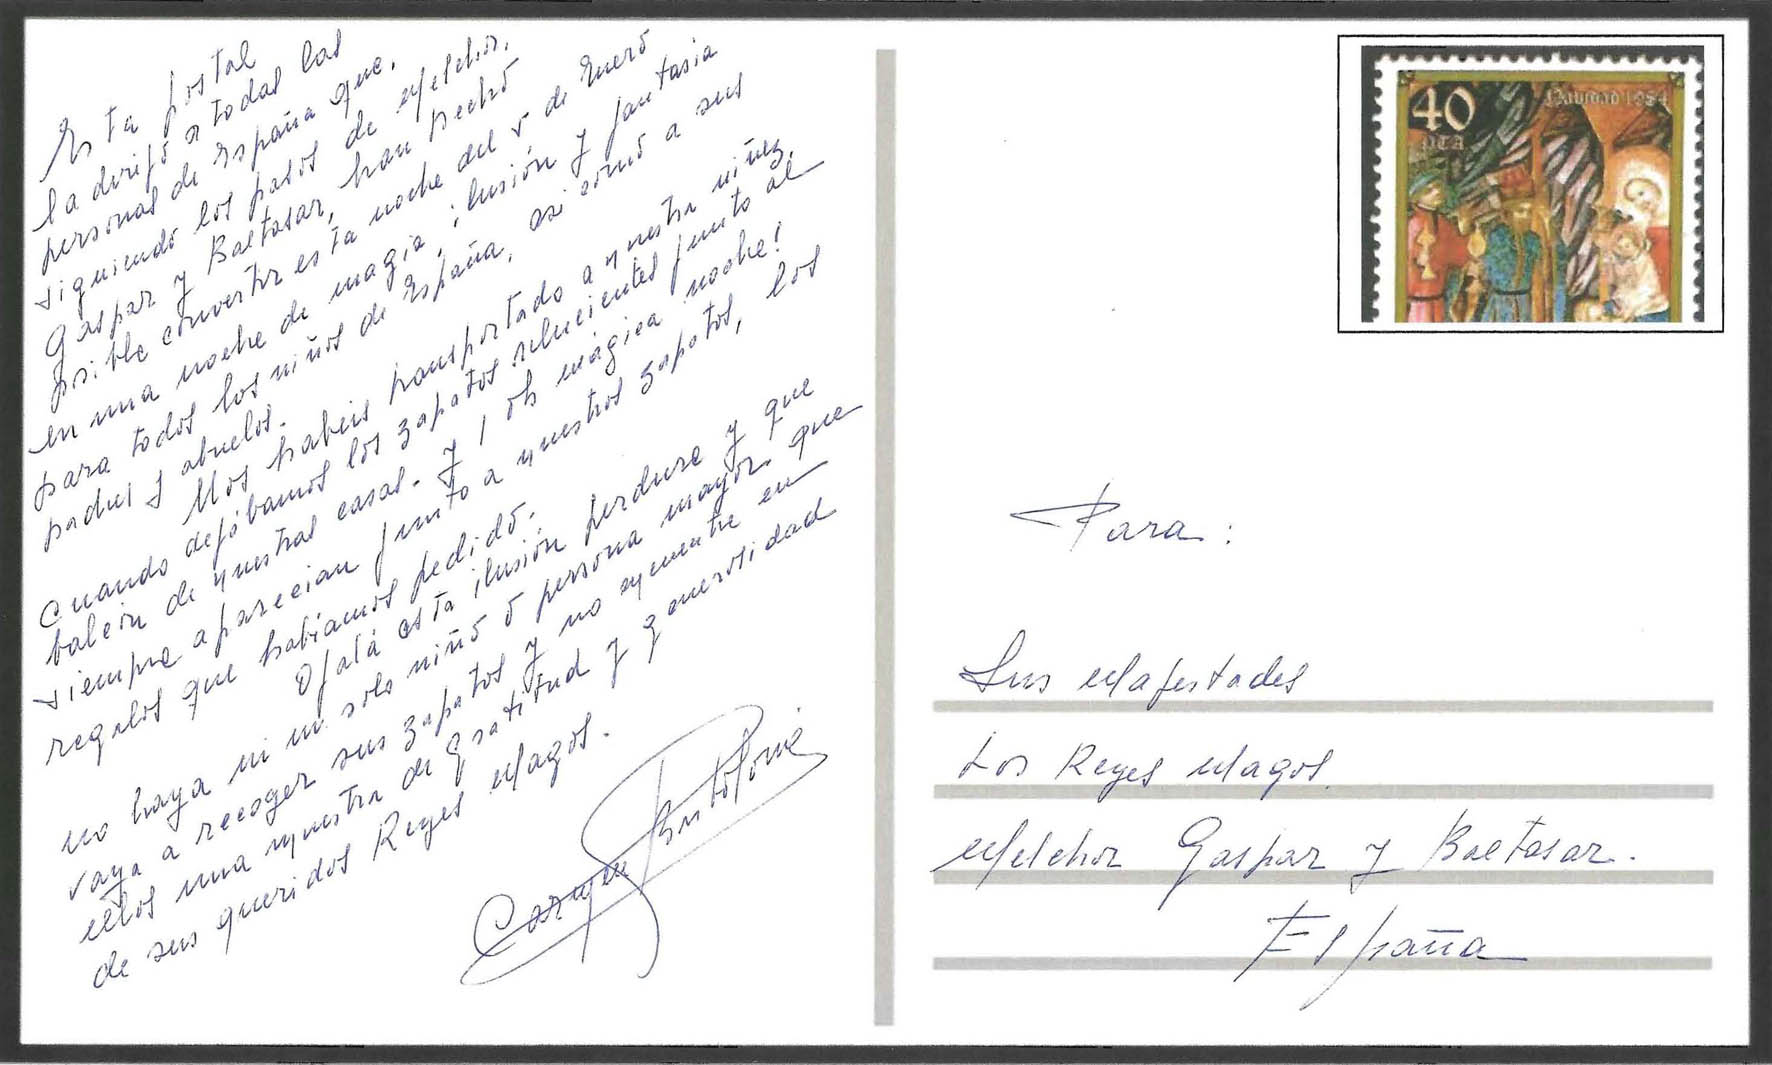 Esta postal
la dirijo a todas las
personas de España que,
siguiendo los pasos de Melchor,
Gaspar y Baltasar, han hecho
posible convertir esta noche del 5 de Enero
en una noche de magia, ilusión y fantasia
para todos los niños de España, asi como a sus
padres y abuelos.
Nos habeis transportado a nuestra niñez,
cuando dejábamos los zapatos relucientes junto al
balcón de nuestras casas. Y ¡oh mágica noche!
siempre aparecian junto a nuestros zapatos, los
regalos que habíamos pedido.
Ojalá esta ilusión perdure y que
no haya ni un solo niño o persona mayor que
vaya a recoger sus zapatos y no encuentre en
ellos una muestra de gratitud y generosidad
de sus queridos Reyes Magos.
Carmen
40
PTA
Navidad 1984
Para:
Sus Majestades
Los Reyes Magos
Melchor Gaspar y Baltasar.
España